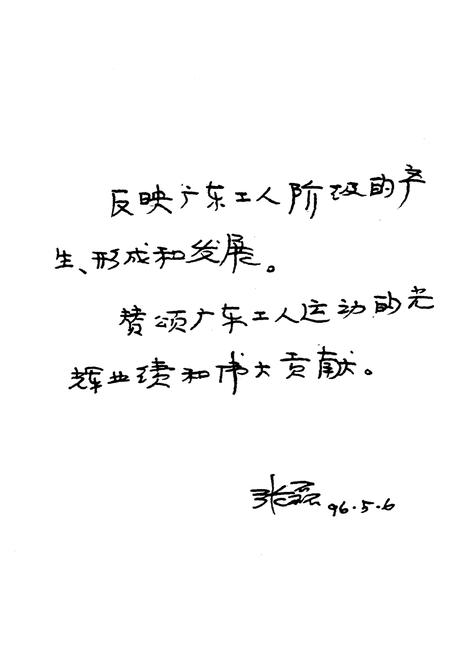 反映广东工人阶级的产
生、形成和发展。
赞颂广东工人运动的光
辉业绩和伟大贡献。
张磊 96.5.6